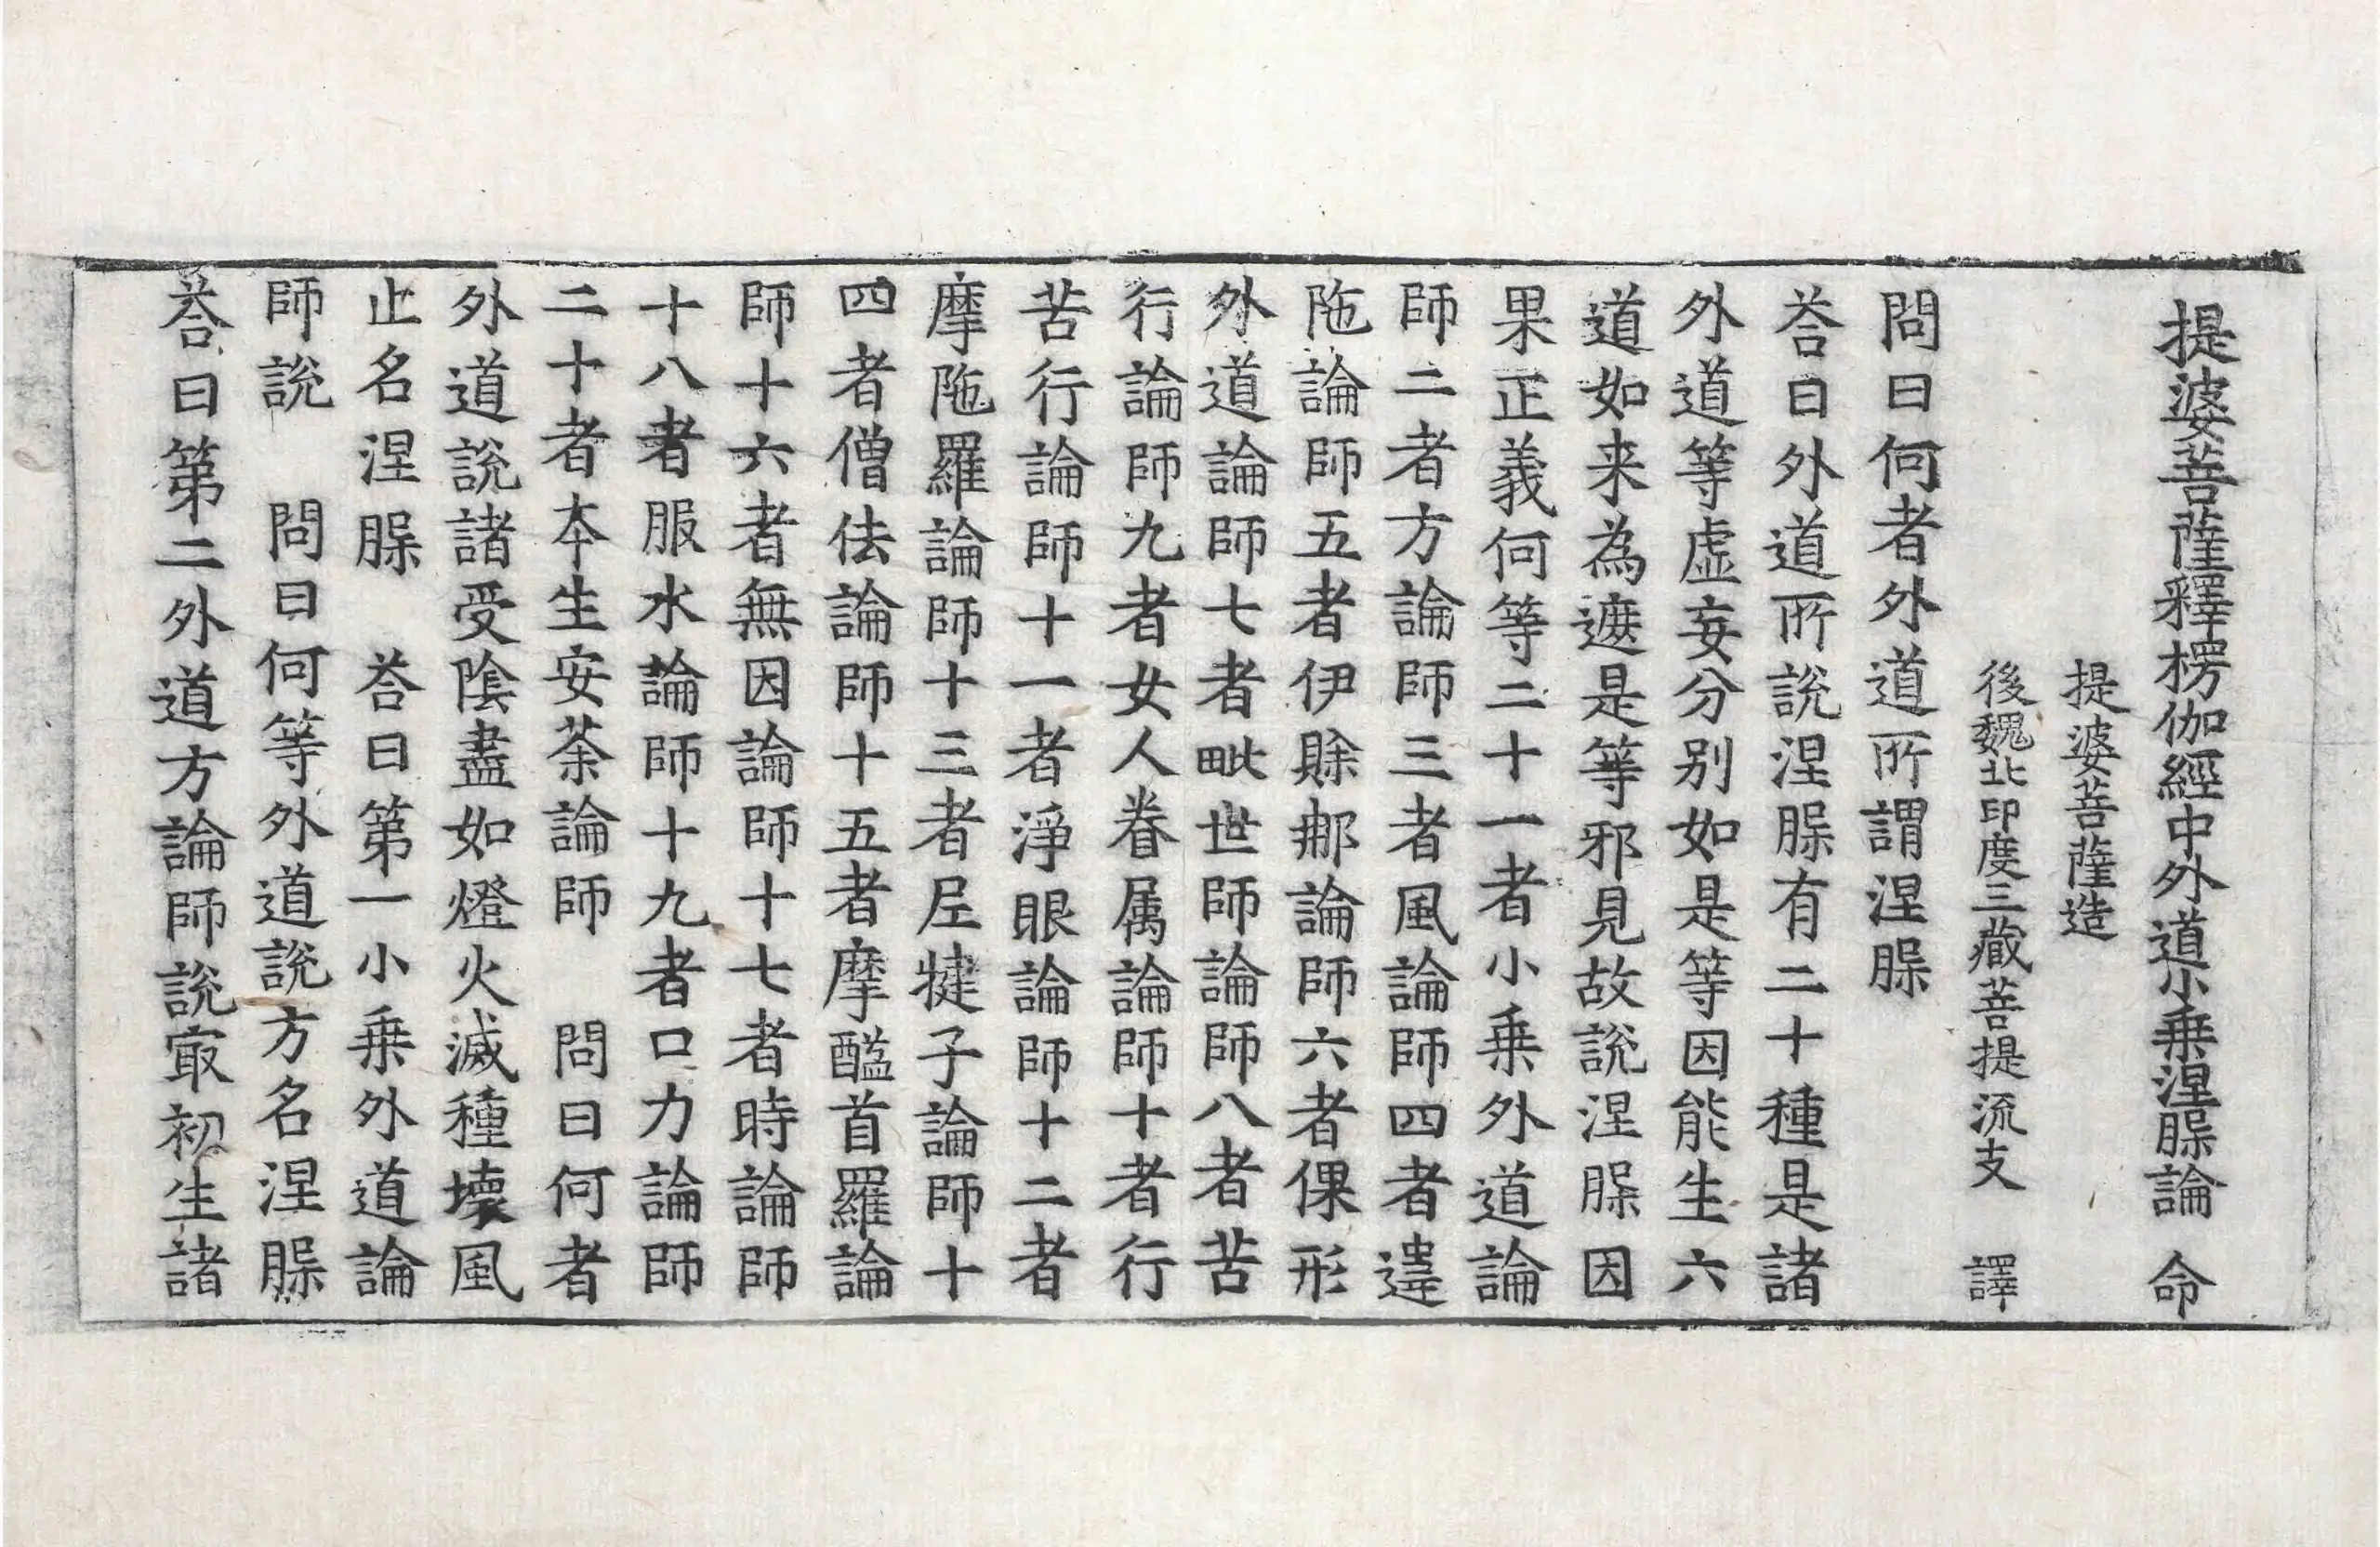 提婆菩薩釋楞伽經中外道小乗涅槃論 命
提婆菩薩造
後魏北印度三藏菩提流支 譯
問曰何者外道所謂涅槃
荅曰外道所說涅槃有二十種是諸
外道等虛妄分别如是等因能生六
道如来為遮是等邪見故說涅槃因
果正義何等二十一者小乗外道論
師二者方論師三者風論師四者違
陁論師五者伊賖那論師六者倮形
外道論師七者毗世師論師八者苦
行論師九者女人眷属論師十者行
苦行論師十一者淨眼論師十二者
摩陁羅論師十三者尼犍子論師十
四者僧佉論師十五者摩醯首羅論
師十六者無因論師十七者時論師
十八者服水論師十九者口力論師
二十者本生安荼論師 問曰何者
外道說諸受陰盡如燈火滅種壞風
止名涅槃 荅曰第一小乗外道論
師說 問曰何等外道說方名涅槃
荅曰第二外道方論師說㝡初生諸